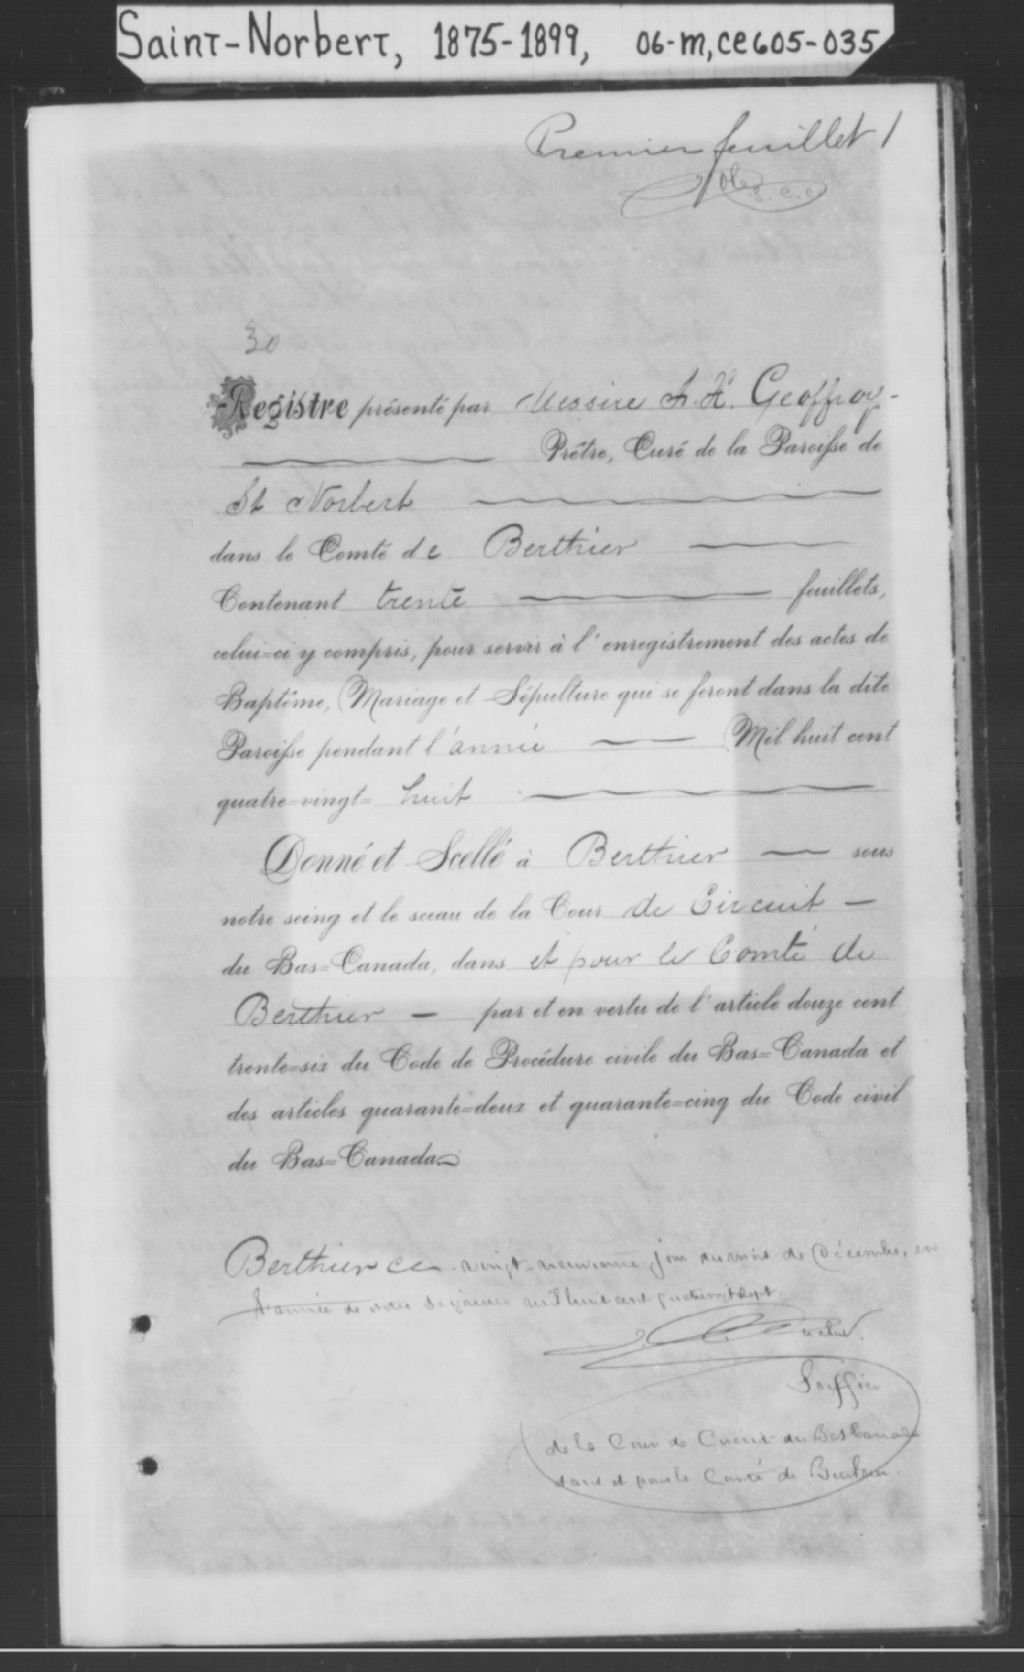 Saint-Norbert, 1875-1899, 06-M, CE605-035
Premier feuillet 1
30
Registre présenté par Messire Geoffroy
Prêtre, Curé de la Paroisse de
St Norbert
dans le Comté de Berthier
Contenant trente feuillets,
celui=ci y compris, pour servir à l'enregistrement des actes de
Baptême, Mariage et Sépulture qui se feront dans la dite
Paroisse pendant l'année Mil huit cent
quatre=vingt= huit
Donné et Scellé à Berthier sous
notre seing et le sceau de la Cour de Circuit
du Bas=Canada, dans et pour le Comté de
Berthier par et en vertu de l'article douze cent
trente=six du Code de Procédure civile du Bas=Canada et
des articles quarante=deux et quarante=cinq du Code civil
du Bas=Canada
Berthier ce vingt-neuvième jour du mois de Décembre, en
l'année de notre Seigneur mil huit cent quatrevingt sept.
Greffier
de la Cour de Circuit du Bas Canada
dans et pour le Comté de Berthier.